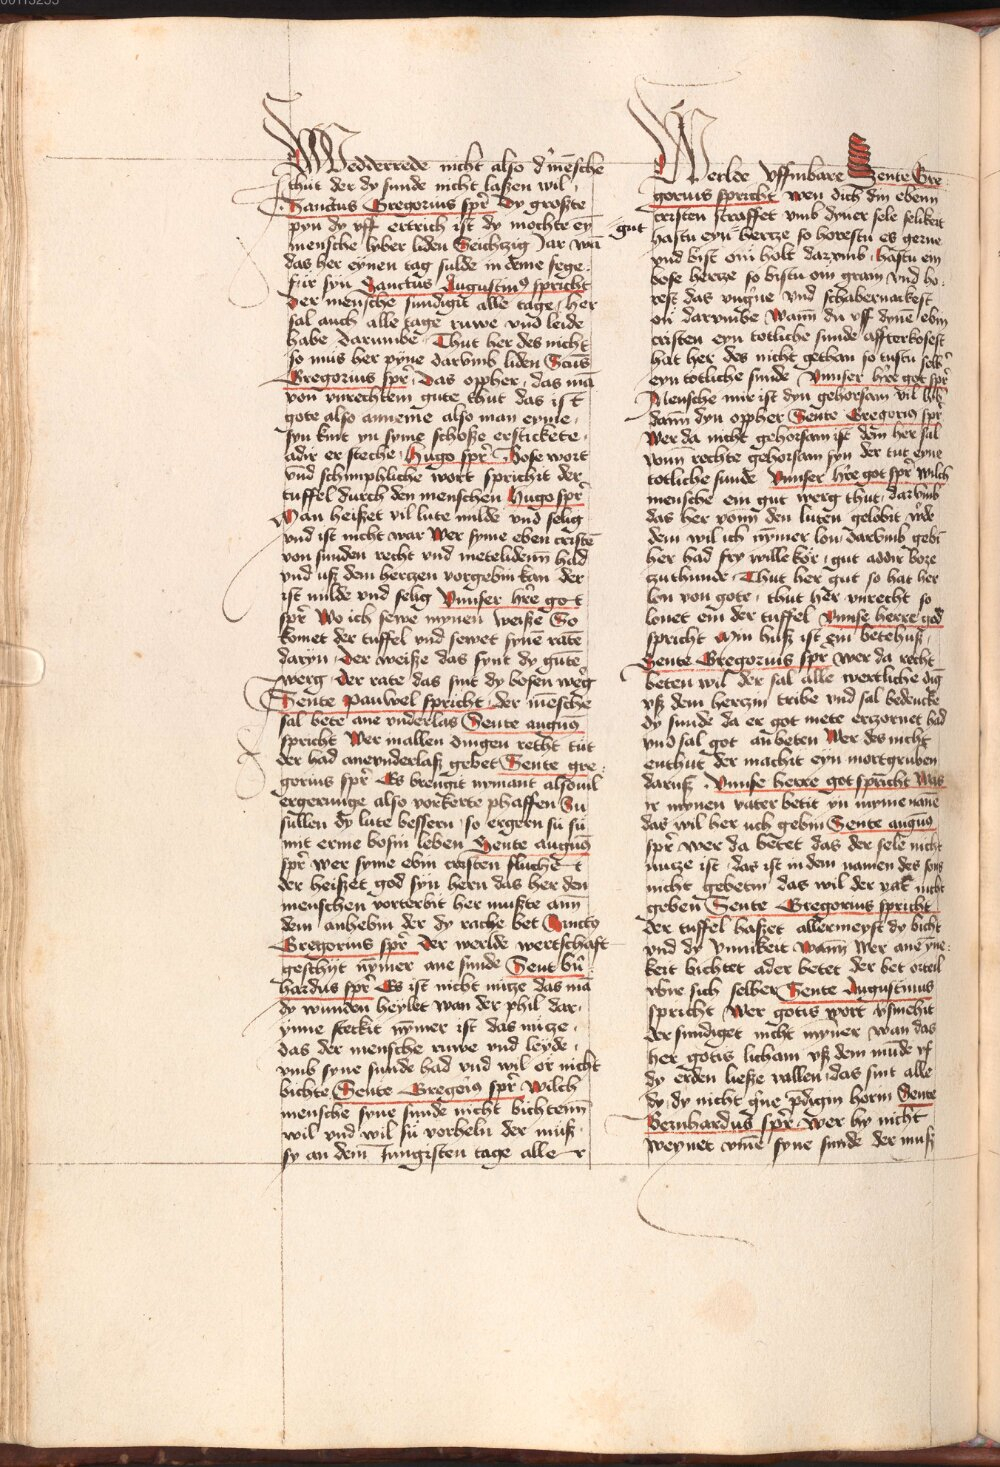 Wedderrede nicht also d' mēsche
thut der dy sunde nicht laßen wil
Sanctus Gregorius spr̄ Dy großte
pyn dy vff ertrich ist dy mochte ey̅
mensche lyber liden Seichzig Jar wā
das her eynen tag sulde in deme fege
für syn Sanctus Augustin9 spricht
Der mensche sundigit alle tage her
sal auch alle tage ruwe vnd leide
habe darumbe Thut her des nicht
so mus her pyne darvmb liden Sctūs
Gregorius spr̄ Das oppher das mā
von vnrechtem gute thut das ist
gote also anneme also man eyme
syn kint yn syme schoße erstickete
adir er steche Hugo spr̄ Bose wort
vnd schimphliche wort sprichit der
tuffel durch den menschen Hugo spr̄
Man heißet vil lute milde vnd selig
vnd ist nicht war Wer syme eben cristē
von sunden recht vnd metelidenn had
vnd uß dem hertzen vorgebin kan der
ist milde vnd selig Vnnser hr̄e got
spr̄ Wo ich sewe mynen weiße So
komet der tuffel vnd sewet synē rate
daryn Der weiße das synt dy gutē
werg Der rate das sint dy bosen werg
Sente pauwel spricht der mēsche
sal bete ane vnderlas Sente augūs
spricht Wer in allen dingen recht tūt
der had ane vnderlaß gebet Sente gre
gorius spr̄ Es brengit nymant alsouil
ergerunge also vorkerte phaffen Su
sullen dy lute bessern so ergern sü sü
mit erme bosin leben Sente augūs
spr̄ wer syme ebin cristen fluchet
der heißet god syn hern das her den
menschen vorterbit her mußte ann
dem anhebin der dy rache bet Sancto
Gregorius spr̄ Der werlde wertschaft
geschyt nȳmer ane sunde Sent bn̄
hardus spr̄ Es ist nicht nutze das mā
dy wunden heylet wan der phil dar
ynne steckit nȳmer ist das nütze
das der mensche ruwe vnd leyde
vmb syne sunde had vnd wil or nicht
bichte Sente Gregori9 spr̄ Wilch
mensche syne sunde nicht bichtenn
wil vnd wil sü vorheln der muß
sy an dem Jungisten tage aller
Werlde vffinbare Sente Gre
gorius spricht wen dich din ebenn
cristen straffet vmb dyner sele selikeit
hastu eyn gut hertze so horestu es gerne
vnd bist om holt darvmb hastu ein
bose hertze so bistu om gram vnd ho
rest das vngn̄e vnd schabernackest
on darvmbe Wann du vff dynē ebin
cristen eyn totliche sunde affterkosest
hat her des nicht gethan so tustu selb̄
eyn totliche sunde Vnnser hr̄e got spr̄
Mensche mir ist dyn gehorsam vil lib
dann dyn oppher Sente Gregori9 spr̄
Wer da nicht gehorsam ist dem her sal
vonn rechte gehorsam syn der tut eyne
totliche sunde Vnnser hr̄e got spr̄ wilch
mensche ein gut werg thut darvmb
das her vonn den luten gelobit w̄de
dem wil ich nȳmer lon darvmb gebi
her had fry wille kör gut addir boze
zcu thunde Thut her gut so hat her
lon von gote thut her vnrecht so
lonet em der tuffel Vnnse herre god
spricht Min huß ist ein betehuß
Sente Gregorius spr̄ wer da recht
beten wil der sal alle wertliche dīg
vß dem hertzin tribe vnd sal bedencke
dy sunde da er got mete erzornet had
vnd sal got anbeten Wer des nicht
enthut der machit eyn mortgruben
daruß Vnnse herre got spricht Was
ir mynen vater betit yn myme namē
das wil her uch gebin Sente augūs
spr̄ wer da betet das der sele nicht
nutze ist das ist in dem namen des sons
nicht gebetin das wil der vat̄ nicht
geben Sente Gregorius spricht
Der tuffel haßet allermeyst dy bicht
vnd dy ynnikeit Wann wer ane yne
keit bichtet ader betet der bet orteil
vbir sich selber Sente Augustinus
spricht Wer gotis wort vsmehit
der sundiget nicht mȳner wan das
her gotis licham vß dem mūde vf
dy erden ließe vallen das sint alle
dy dy nicht gne p̄digin horin Sente
Bernhardus spr̄ Wer hy nicht
weynet vm̄e syne sunde der muß